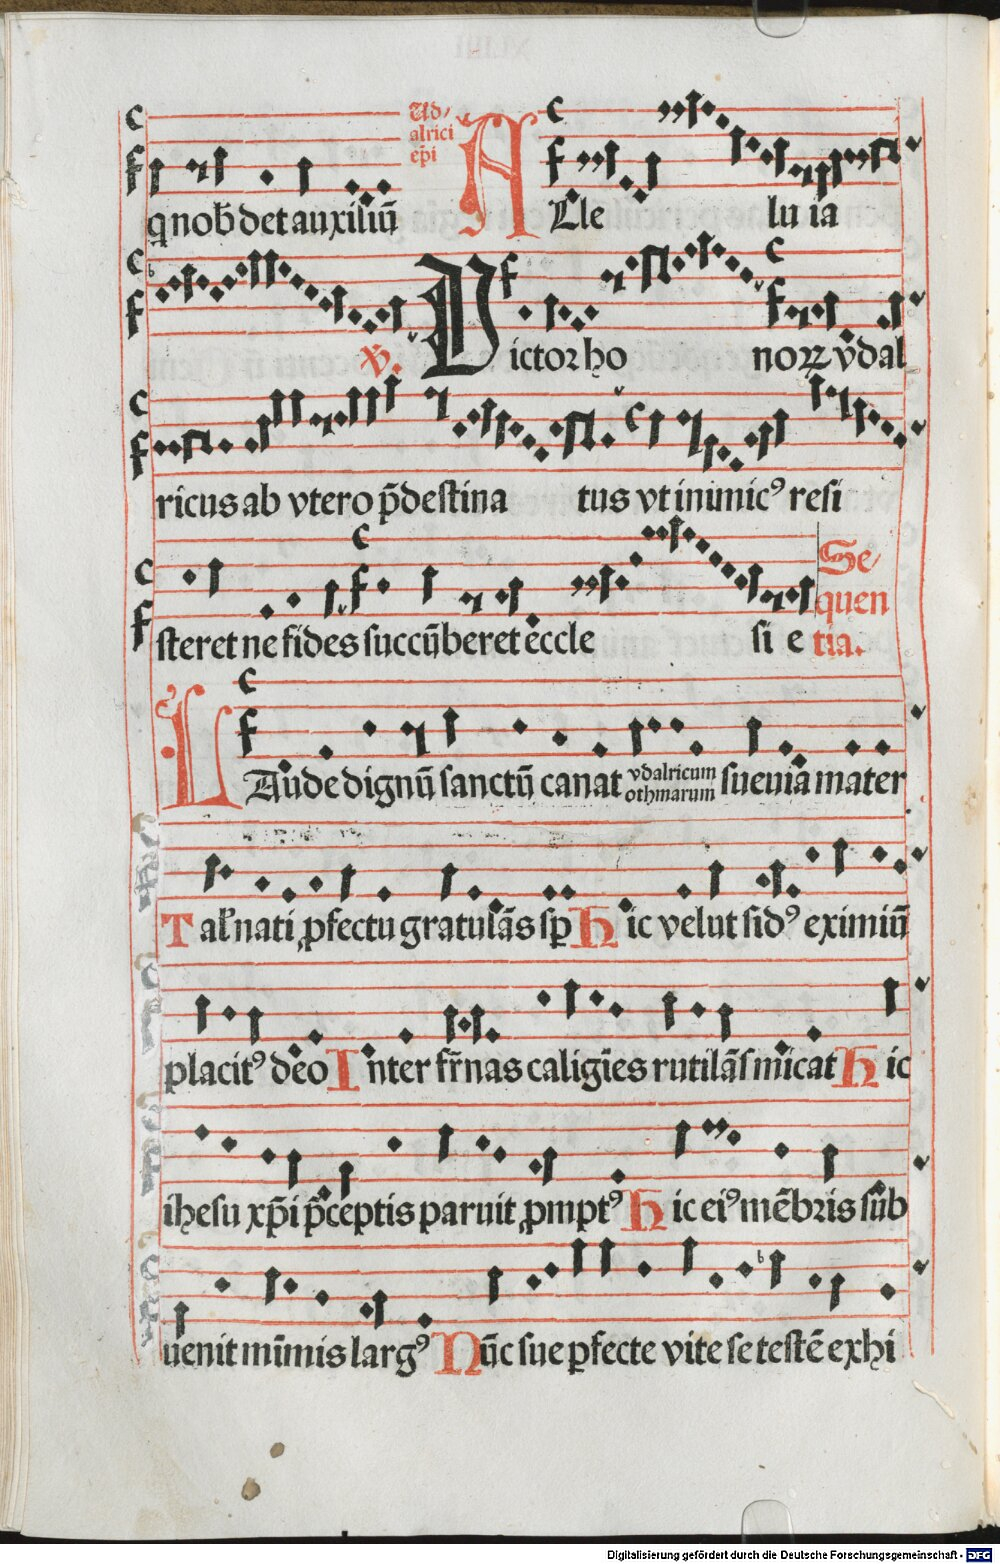 Ud/
alrici
epi
q nob det auxiliū ALle lu ia
v. Victor ho norꝝ vdal
ricus ab vtero p̄destina tus vt inimicꝰ resi
Se/
quen
tia.
steret ne fides succūberet eccle si e
LAude dignū sanctū canat vdalricum othmarum sueuia mater
Tal̄nati ꝓfectu gratulās sp Hic velut sidꝰ eximiū
placitꝰ deo Inter fr̄nas caligīes rutilās micat Hic
ihesu xp̄i p̄ceptis paruit ꝓmptꝰ Hic eiꝰ mēbris sub
uenit mīmis largꝰ Nūc sue ꝑfecte vite se testē exhi
Digitalisierung gefördert durch die Deutsche Forschungsgemeinschaft - DFG